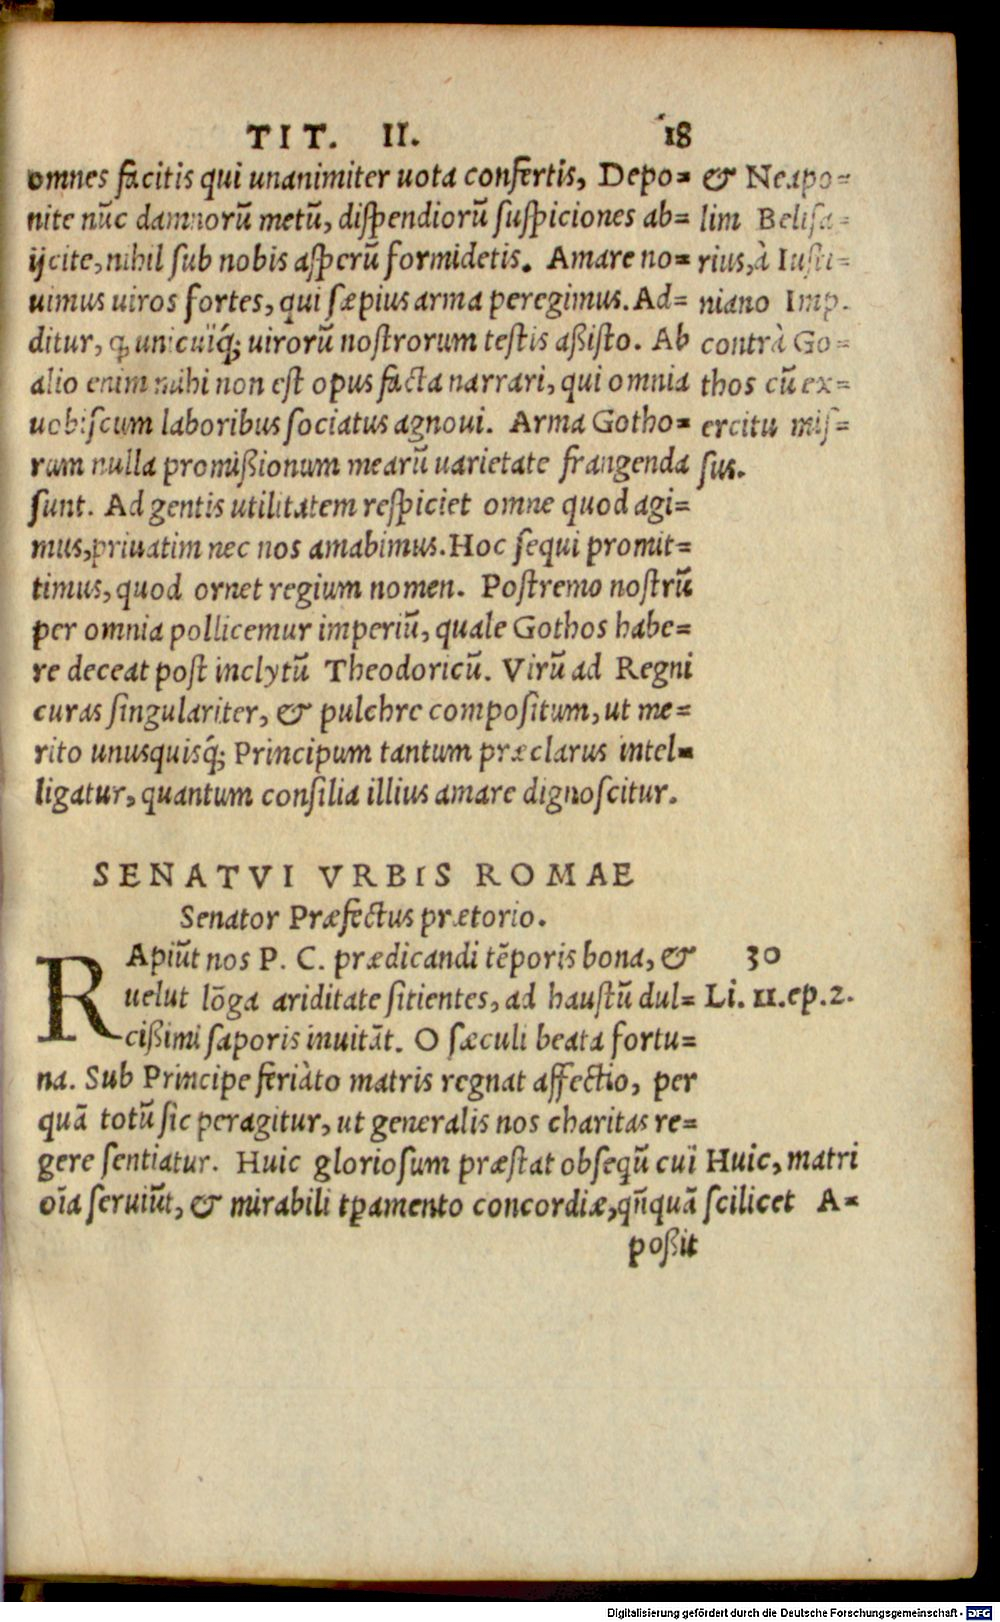 TIT. II. 18
omnes facitis qui unanimiter uota confertis, Depo-
nite nũc damnorũ metũ, dispendiorũ suspiciones ab-
ijcite, nihil sub nobis asperũ formidetis. Amare no-
uimus uiros fortes, qui sæpius arma peregimus. Ad-
ditur, ꝙ unicuiq́; uirorũ nostrorum testis aßisto. Ab
alio enim mihi non est opus facta narrari, qui omnia
uobiscum laboribus sociatus agnoui. Arma Gotho-
rum nulla promißionum mearũ uarietate frangenda
sunt. Ad gentis utilitatem respiciet omne quod agi-
mus, priuatim nec nos amabimus. Hoc sequi promit-
timus, quod ornet regium nomen. Postremo nostrũ
per omnia pollicemur imperiũ, quale Gothos habe-
re deceat post inclytũ Theodoricũ. Virũ ad Regni
curas singulariter, & pulchre compositum, ut me-
rito unusquisq́; Principum tantum præclarus intel-
ligatur, quantum consilia illius amare dignoscitur.
& Neapo-
lim Belisa-
rius, à Iusti-
niano Imp.
contrà Go-
thos cũ ex-
ercitu mis-
sus.
SENATVI VRBIS ROMAE
Senator Præfectus prætorio.
RApiũt nos P. C. prædicandi tẽporis bona, &
uelut lõga ariditate sitientes, ad haustũ dul-
cißimi saporis inuitãt. O sæculi beata fortu-
na. Sub Principe feriàto matris regnat affectio, per
quã totũ sic peragitur, ut generalis nos charitas re-
gere sentiatur. Huic gloriosum præstat obsequũ cui
oĩa seruiũt, & mirabili tꝑamento concordiæ, qñquã
30
Li. 11. ep. 2.
Huic, matri
scilicet A-
poßit
Digitalisierung gefördert durch die Deutsche Forschungsgemeinschaft - DFG